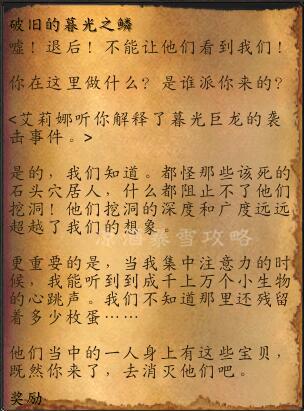 破旧的暮光之鳞
嘘！退后！不能让他们看到我们！
你在这里做什么？是谁派你来的？
<艾莉娜听你解释了暮光巨龙的袭
击事件。>
是的，我们知道。都怪那些该死的
石头穴居人，什么都阻止不了他们
挖洞！他们挖洞的深度和广度远远
超越了我们的想象。
凉酒暴雪攻略
更重要的是，当我集中注意力的时
候，我能听到到成千上万个小生物
的心跳声。我们不知道那里还残留
着多少枚蛋……
他们当中的一人身上有这些宝贝，
既然你来了，去消灭他们吧。
奖励